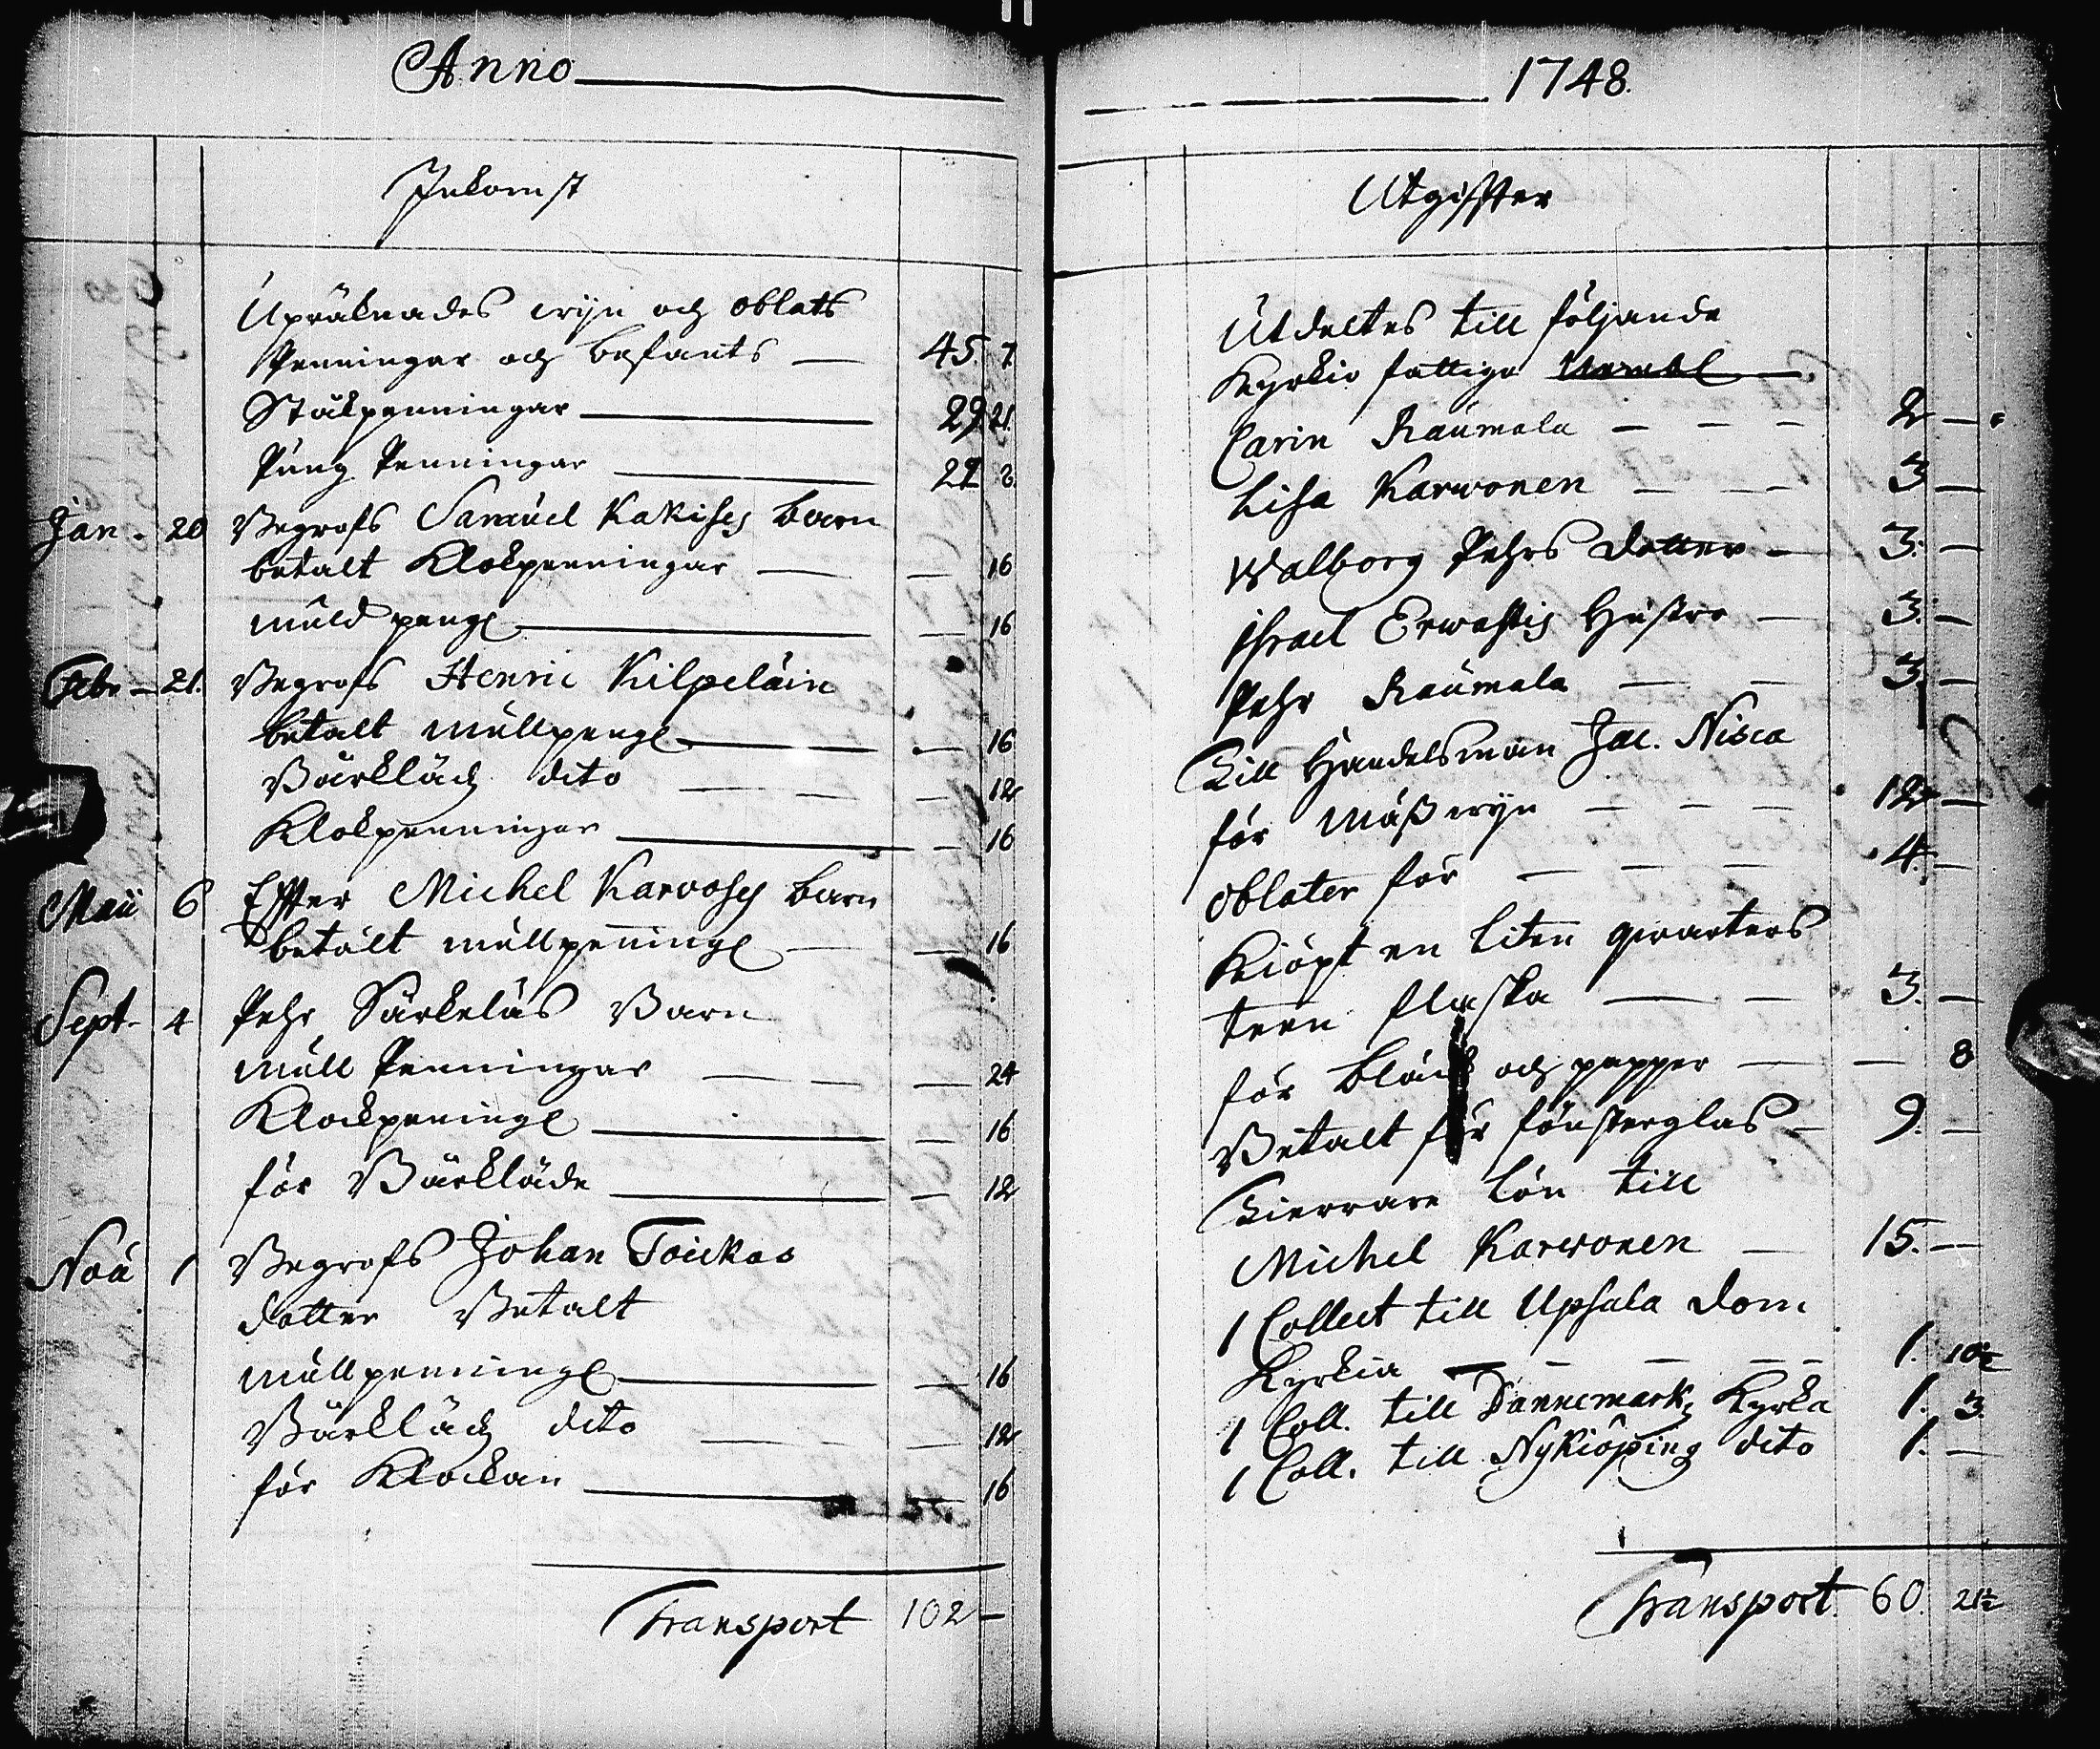 Anno
Inkomst
Upräknades wijn och oblats
Penningar och befants — 45. 7.
Stäkpenningar — 29. 21.
Pung Penningar
Jan. 20 Begrofs Samuel Kakises barn
betalt Klokpenningar — 16
muld peng — 16
Febr. 21. Begrofs Henric Kilpeläin
betalt mullpeng — 16
Bårkläd dito — 12
Klokpenningar — 16
Maii 6 Effter Michel Karvoses barn
betalt mullpenning — 16
Sept. 4 Pehr Särkeläs Barn
mull Penningar — 24
Klockpening — 16
för Bårkläde — 12
Nov. 1 Begrofs Johan Toickas
dotter Betalt
mullpenning — 16
Bårkläd dito — 12
för Klockan — 16
Transport 102 —
1748.
Utgiffter
Utdeltes till följande
Kyrkio fattiga
Carin Raumala — 2 —
Lisa Karwonen — 3 —
Walborg Pehrs dotter — 3. —
Israel Erwastis Hustro — 3. —
Pehr Raumala — 3. —
Till Handelsman Jac. Nisca
för mäß wijn — 12 —
oblater för — 4. —
Kiöpt en liten qwarters
teen flaska — 3. —
för bläck och papper — 8
Betalt för fönsterglas — 9. —
Kierrare lön till
Michel Karwonen — 15. —
1 Collect till Upsala dom
Kyrkia — 1. 10½
1 Coll. till Dannemark Kyrka 1. 3.
1 Coll. till Nykiöping dito 1. —
Transport. 60. 21½